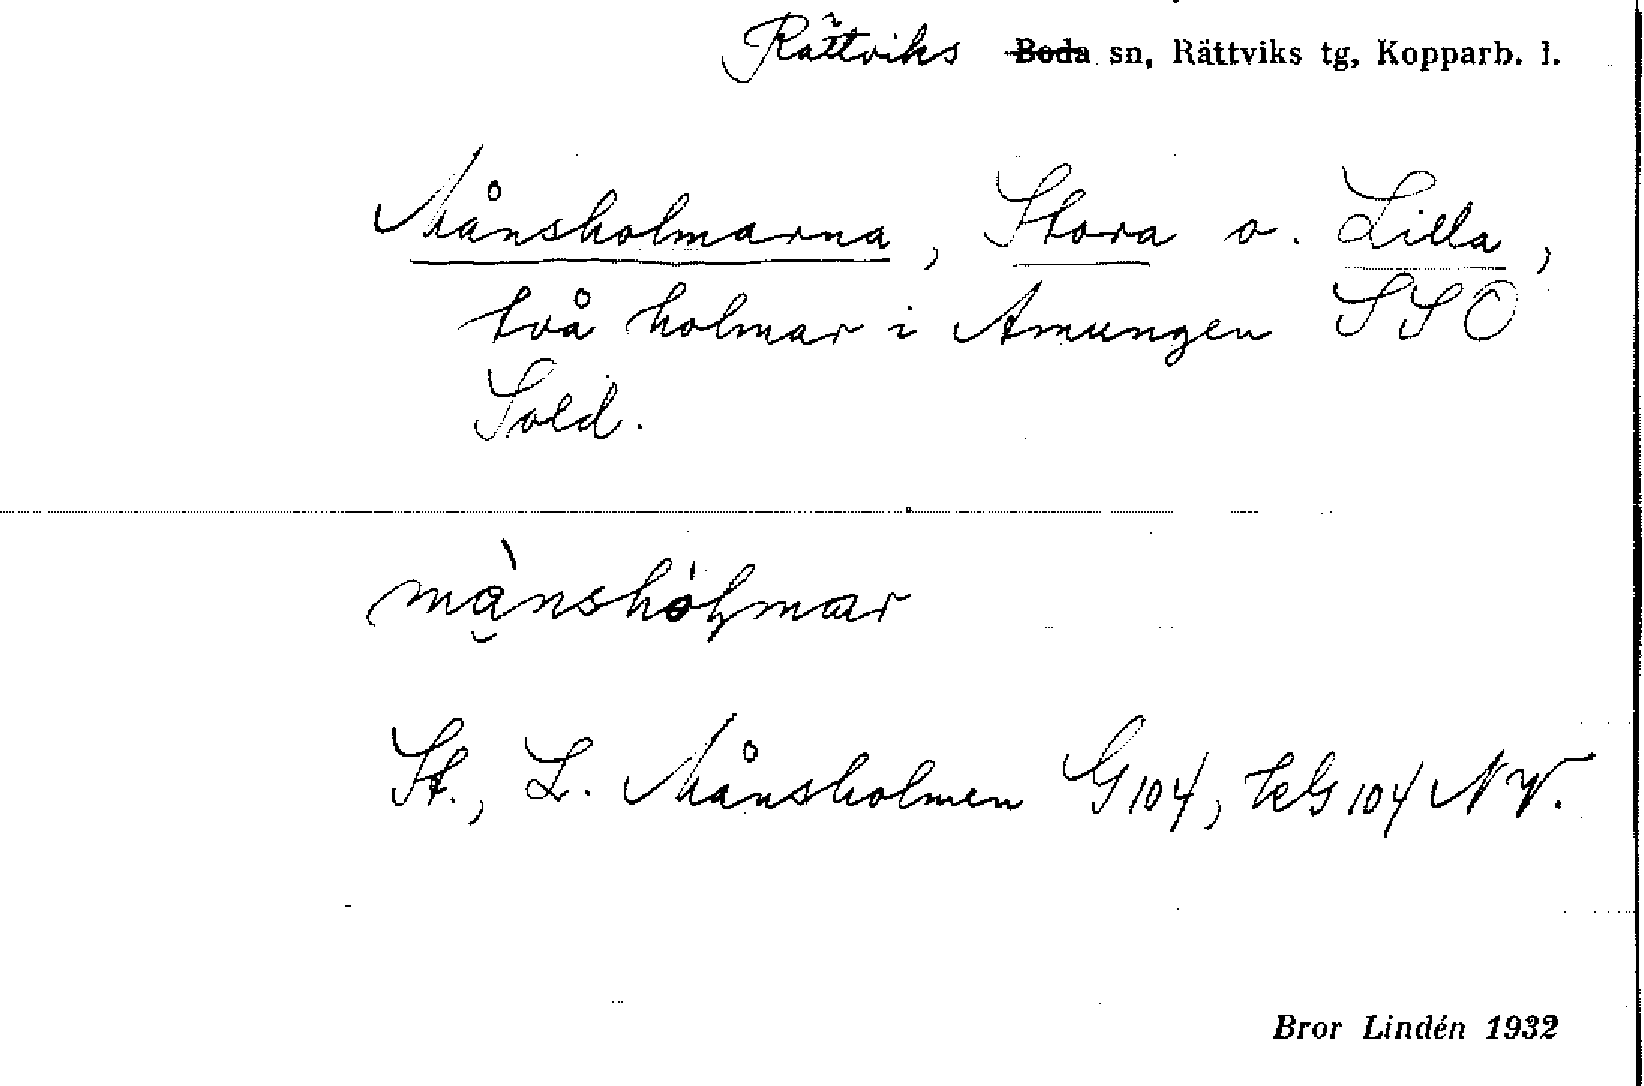 Rättviks Boda sn, Rättviks tg, Kopparb. l.
Månsholmarna, Stora o. Lilla,
två holmar i Amungen SSO
Sold.
månshólmar
St., L. Månsholmen G104, kG104 NV.
Bror Lindén 1932